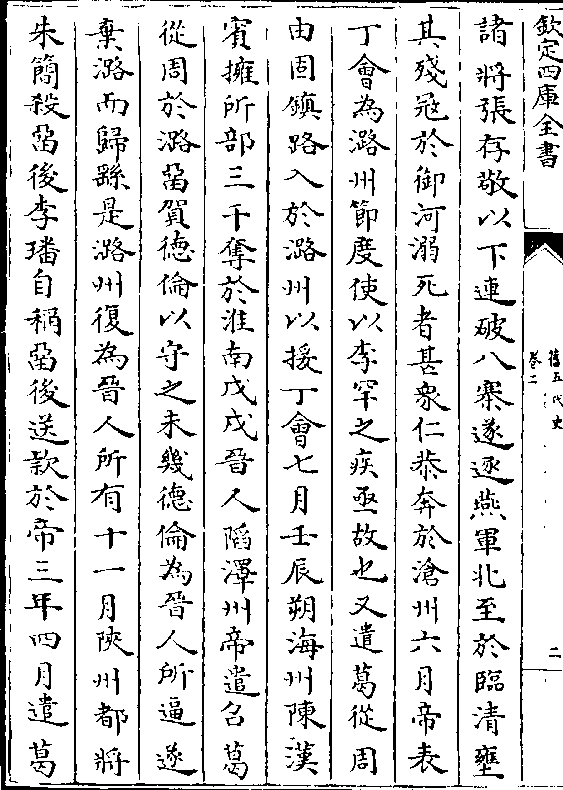 欽定四庫全書
舊五代史
卷二
二
諸將張存敬以下連破八寨遂逐燕軍北至於臨清壅
其殘冦於御河溺死者甚衆仁恭奔於滄州六月帝表
丁會為潞州節度使以李罕之疾亟故也又遣葛從周
由固鎮路入於潞州以援丁會七月壬辰朔海州陳漢
賓擁所部三千奪於淮南戊戌晉人䧟澤州帝遣召葛
從周於潞留賀德倫以守之未幾德倫為晉人所逼遂
棄潞而歸繇是潞州復為晉人所有十一月陜州都將
朱簡殺留後李璠自稱留後送款於帝三年四月遣葛